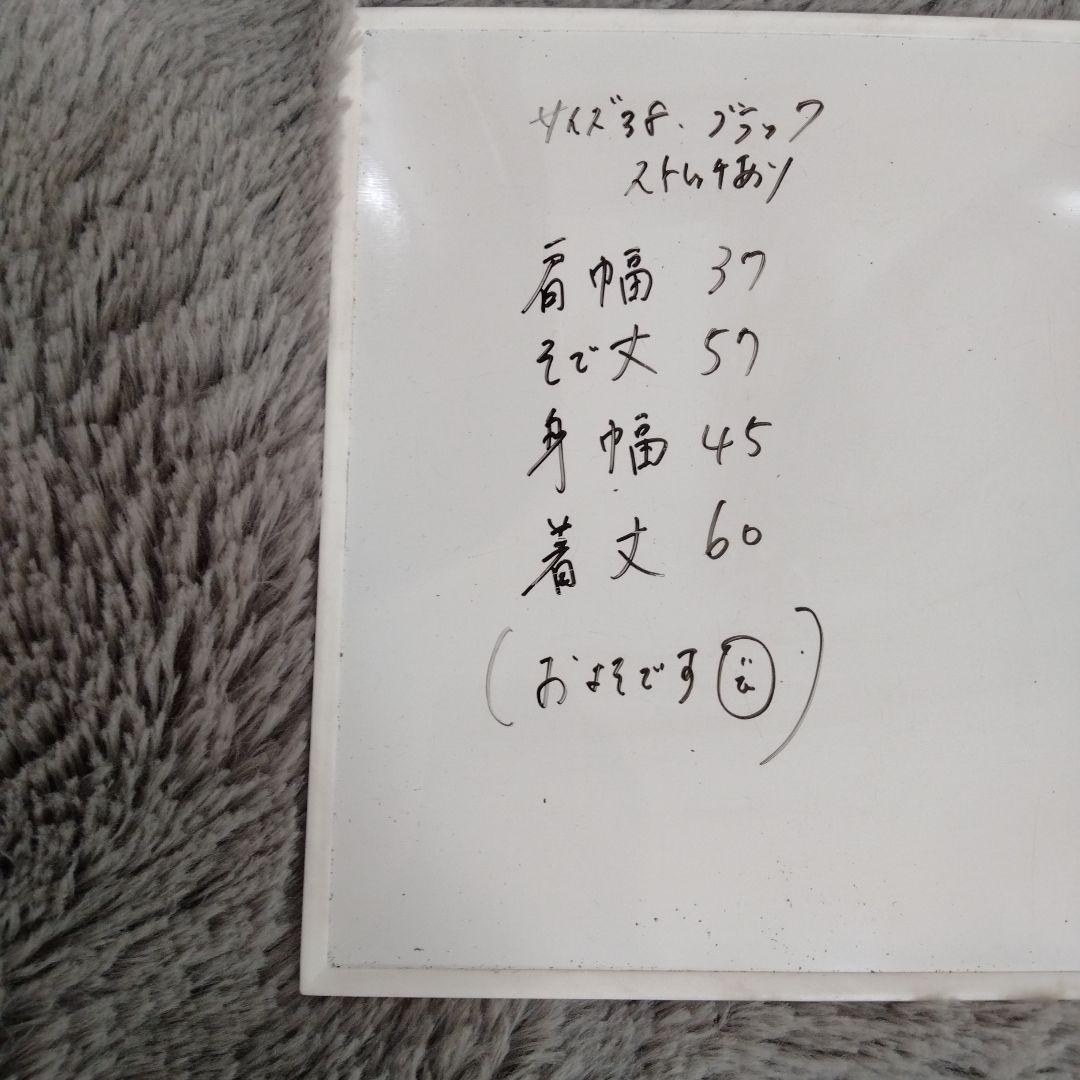 サイズ38、ブラック
ストレッチあり
肩幅 37
そで丈 57
身幅 45
着丈 60
(およそです)